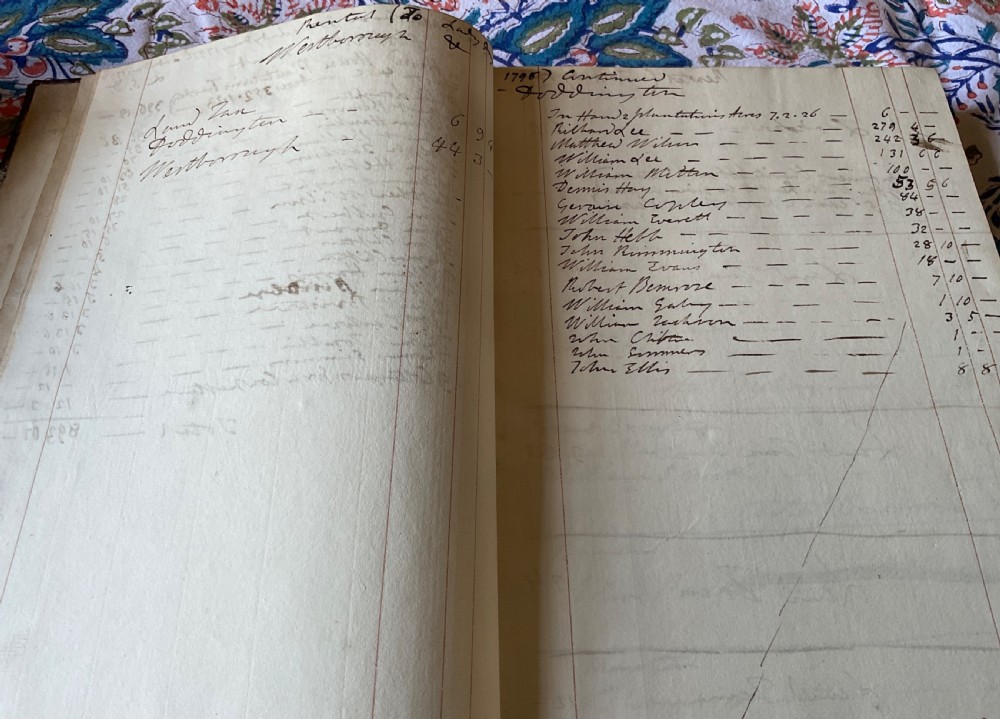 Rental (To Lady
Westborough &
Land Tax
Doddington — — 6 9
Westborough — — 44 3
1798) Continued
— Doddington
In Hand 2 plantations Acres 7.2.26 — 6 — —
Richard Lee — — — — — 279 4 —
Matthew Wilson — — — — 242 3 6
William Lee — — — — — 131 6 6
William Metton — — — — 100 — —
Dennis Hay — — — — — 53 5 6
Gervaise Copley — — — — 84 — —
William Everett — — — — 38 — —
John Hebb — — — — — 32 — —
John Rimmington — — — — 28 10 —
William Evans — — — — 18 — —
Robert Bemrose — — — — 7 10 —
William Gaby — — — — 1 10 —
William Jackson — — — — 3 5 —
John — — — 1 — —
John Simmers — — — 1 —
John Ellis — — — — 8 8